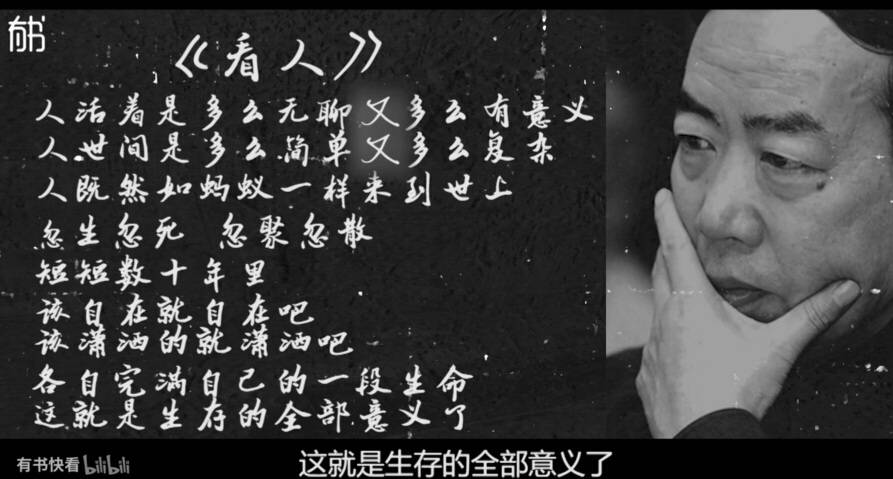 有书
《看人》
人活着是多么无聊又多么有意义
人世间是多么简单又多么复杂
人既然如蚂蚁一样来到世上
忽生忽死 忽聚忽散
短短数十年里
该自在就自在吧
该潇洒的就潇洒吧
各自完满自己的一段生命
这就是生存的全部意义了
有书快看 bilibili
这就是生存的全部意义了